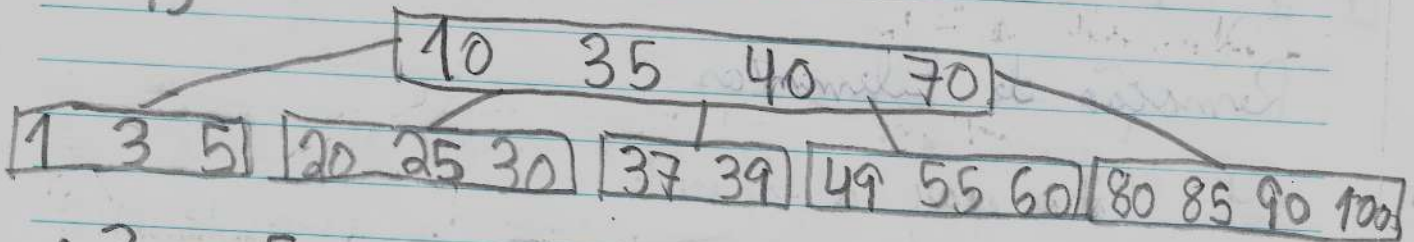 10 35 40 70
1 3 5 20 25 30 37 39 49 55 60 80 85 90 100